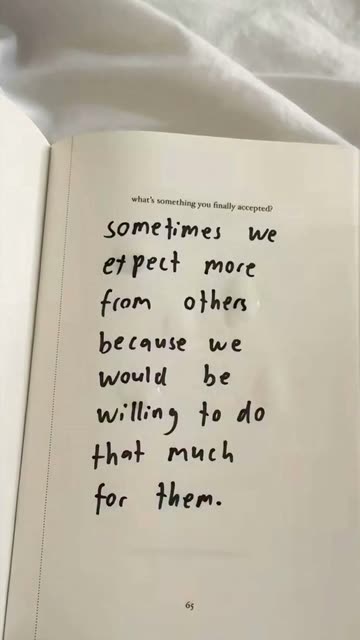 what's something you finally accepted?
sometimes we
expect more
from others
because we
would be
willing to do
that much
for them.
65